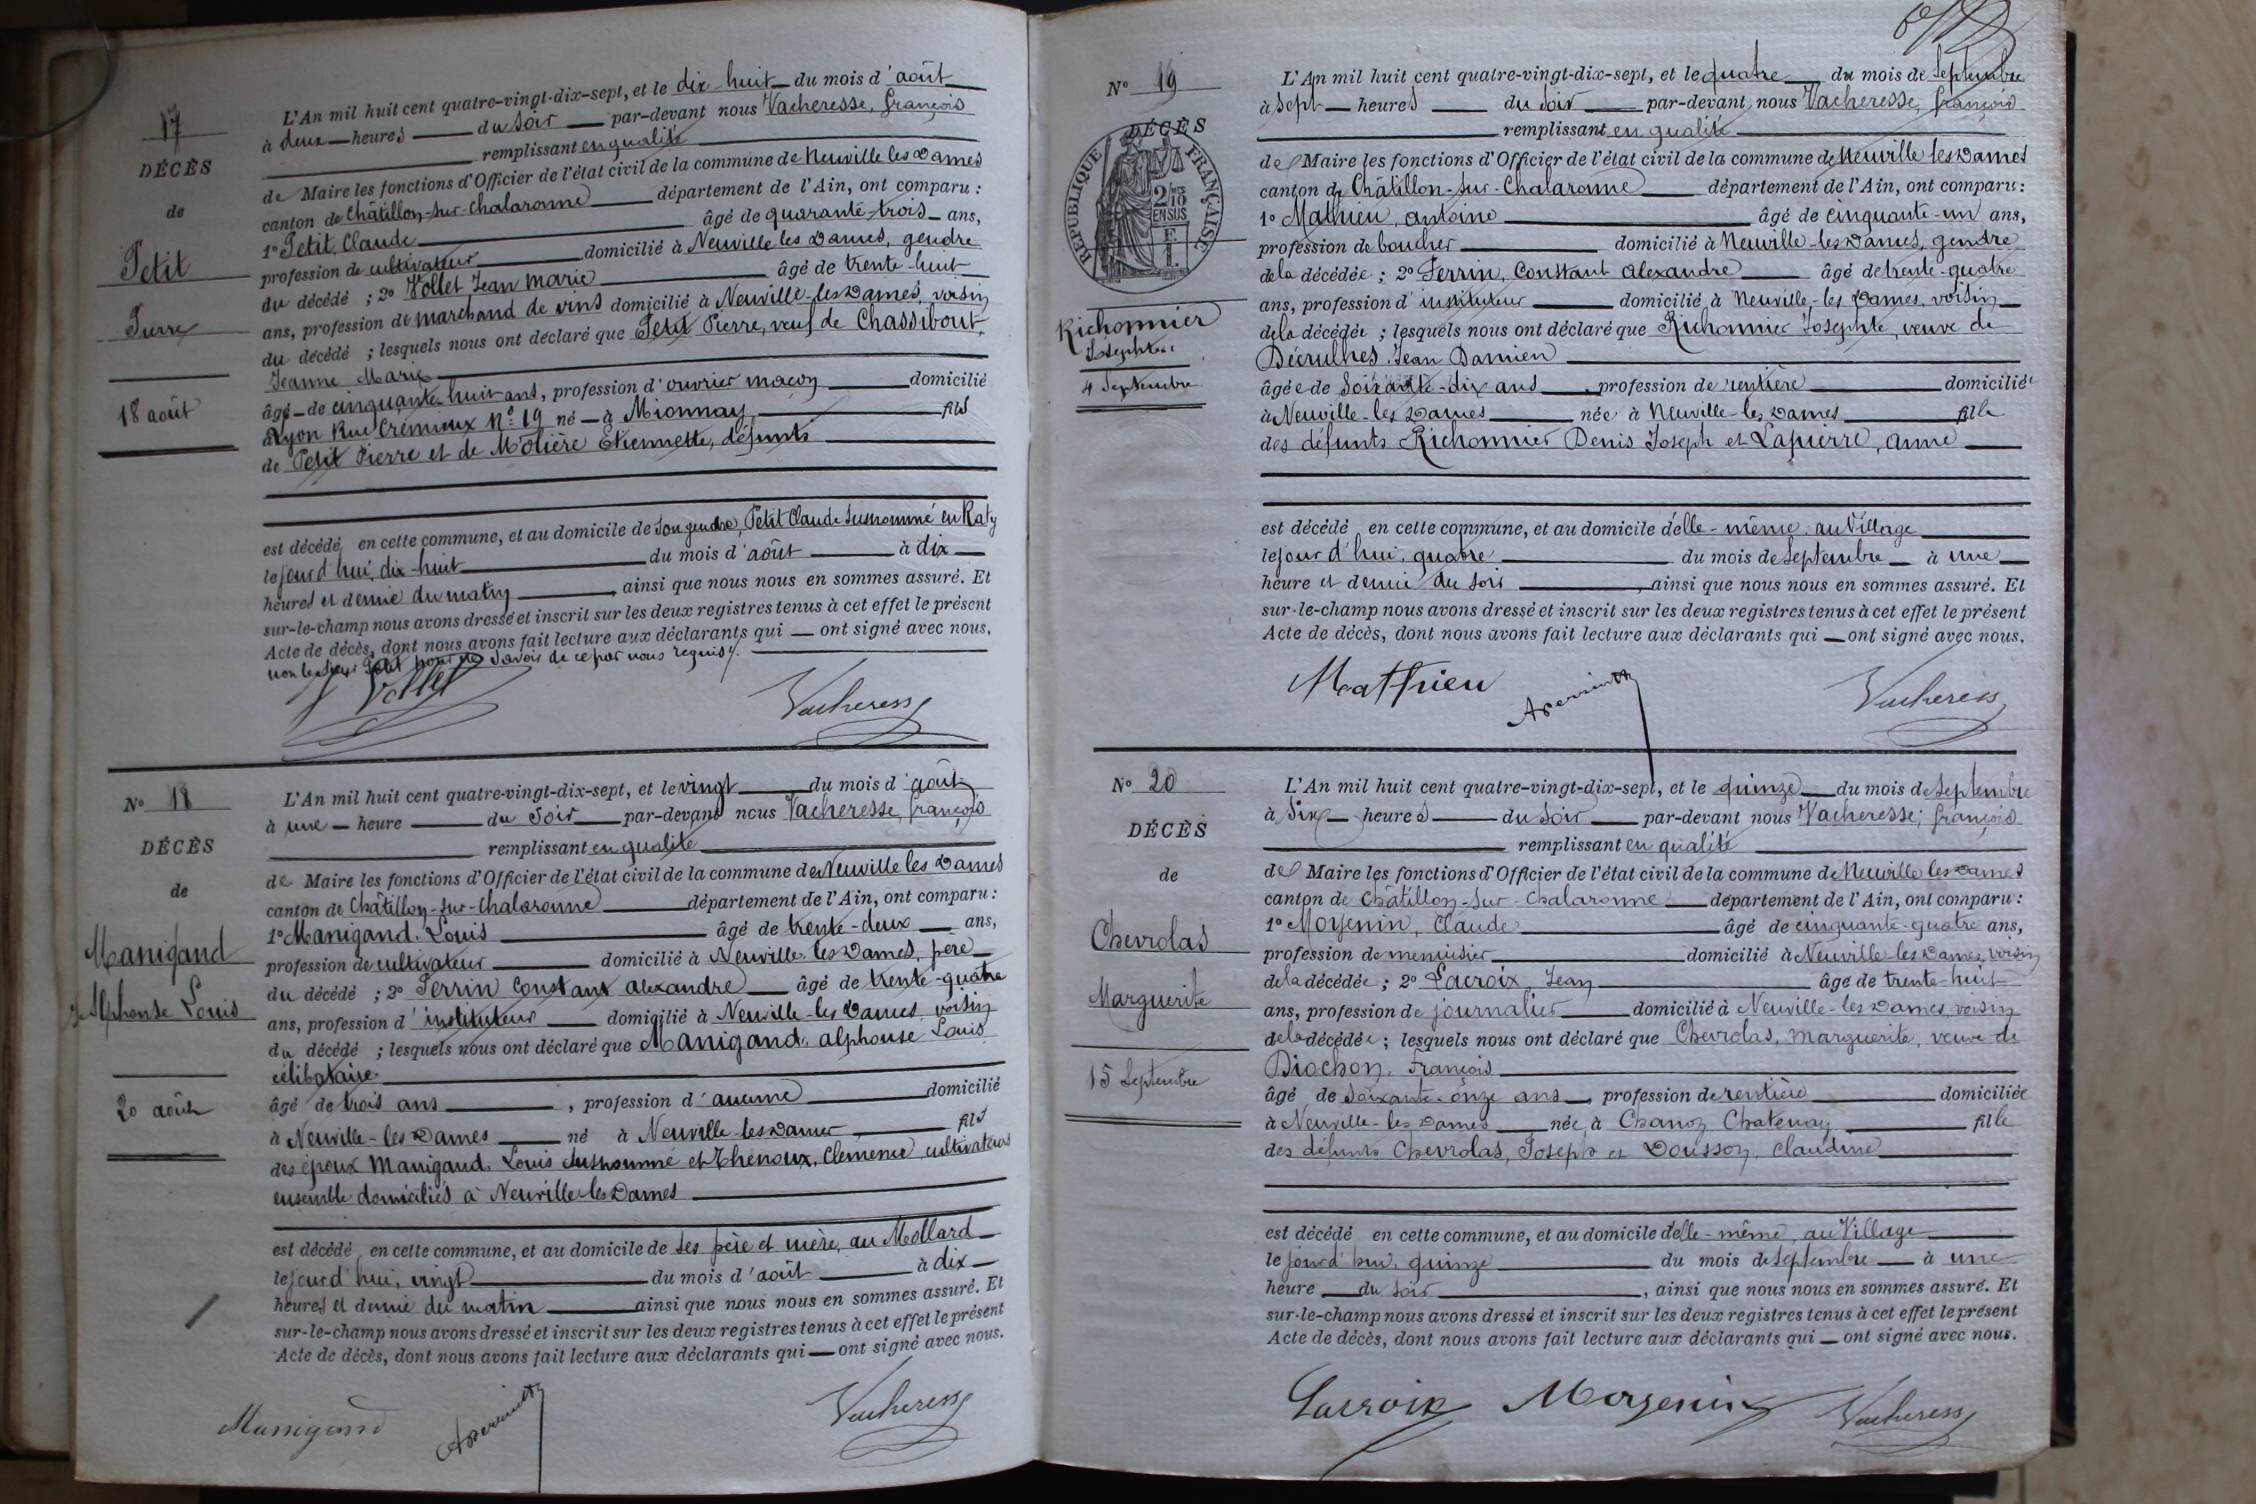 17
DÉCÈS
de
Petit
Pierre
18 août
L'An mil huit cent quatre-vingt-dix-sept, et le dix-huit du mois d'août
à deux heures du soir par-devant nous Vacheresse, françois
remplissant en qualité
de Maire les fonctions d'Officier de l'état civil de la commune de Neuville les Dames
canton de Châtillon-sur-Chalaronne département de l'Ain, ont comparu :
1º Petit, Claude âgé de quarante-trois ans,
profession de cultivateur domicilié à Neuville les Dames, gendre
du décédé ; 2º Vollet Jean Marie âgé de trente-huit
ans, profession de marchand de vins domicilié à Neuville-les-Dames, voisin
du décédé ; lesquels nous ont déclaré que Petit Pierre, veuf de Chassibout,
Jeanne Marie
âgé de cinquante-huit ans, profession d'ouvrier maçon domicilié
à Lyon Rue Crémieux Nº 19 né à Mionnay, fils
de Petit Pierre et de Molière Etiennette, défunts
est décédé en cette commune, et au domicile de son gendre, Petit Claude susnommé en Raty
le jourd'hui, dix-huit du mois d'août à dix
heures et demie du matin, ainsi que nous nous en sommes assuré. Et
sur-le-champ nous avons dressé et inscrit sur les deux registres tenus à cet effet le présent
Acte de décès, dont nous avons fait lecture aux déclarants qui ont signé avec nous,
non le sieur Petit pour ne savoir de ce par nous requis.
Vollet Vacheresse
Nº 18
DÉCÈS
de
Manigand
Alphonse Louis
20 août
L'An mil huit cent quatre-vingt-dix-sept, et le vingt du mois d'août
à une heure du soir par-devant nous Vacheresse, françois
remplissant en qualité
de Maire les fonctions d'Officier de l'état civil de la commune de Neuville les Dames
canton de Châtillon-sur-Chalaronne département de l'Ain, ont comparu :
1º Manigand, Louis âgé de trente-deux ans,
profession de cultivateur domicilié à Neuville les Dames, père
du décédé ; 2º Perrin Constant Alexandre âgé de trente-quatre
ans, profession d'instituteur domicilié à Neuville-les-Dames, voisin
du décédé ; lesquels nous ont déclaré que Manigand, Alphonse Louis
célibataire
âgé de trois ans, profession d'aucune domicilié
à Neuville-les Dames né à Neuville-les Dames, fils
des époux Manigand, Louis susnommé et Thenoux, Clemence, cultivateurs
ensemble domiciliés à Neuville-les-Dames
est décédé en cette commune, et au domicile de ses père et mère, au Mollard
le jourd'hui, vingt du mois d'août à dix
heures et demie du matin ainsi que nous nous en sommes assuré. Et
sur-le-champ nous avons dressé et inscrit sur les deux registres tenus à cet effet le présent
Acte de décès, dont nous avons fait lecture aux déclarants qui ont signé avec nous.
Manigand Aperrin Vacheresse
Nº 19
DÉCÈS
RÉPUBLIQUE FRANÇAISE
2/10 EN SUS
Richonnier
Josephte
4 Septembre
L'An mil huit cent quatre-vingt-dix-sept, et le quatre du mois de Septembre
à sept heures du soir par-devant nous Vacheresse, françois
remplissant en qualité
de Maire les fonctions d'Officier de l'état civil de la commune de Neuville les Dames
canton de Châtillon-sur-Chalaronne département de l'Ain, ont comparu :
1º Mathieu, Antoine âgé de cinquante-un ans,
profession de boucher domicilié à Neuville-les-Dames, gendre
de la décédée ; 2º Perrin, Constant Alexandre âgé de trente-quatre
ans, profession d'instituteur domicilié à Neuville-les Dames, voisin
de la décédée ; lesquels nous ont déclaré que Richonnier Josephte, veuve de
Décrulhes, Jean Damien
âgée de Soixante-dix ans, profession de rentière domiciliée
à Neuville-les Dames née à Neuville-les Dames fille
des défunts Richonnier Denis Joseph et Lapierre, Anne
est décédé en cette commune, et au domicile d'elle-même, au Village
le jourd'hui, quatre du mois de Septembre à une
heure et demie du soir, ainsi que nous nous en sommes assuré. Et
sur-le-champ nous avons dressé et inscrit sur les deux registres tenus à cet effet le présent
Acte de décès, dont nous avons fait lecture aux déclarants qui ont signé avec nous.
Mathieu Aperrin Vacheresse
Nº 20
DÉCÈS
de
Chevrolas
Marguerite
15 Septembre
L'An mil huit cent quatre-vingt-dix-sept, et le quinze du mois de Septembre
à Six heures du soir par-devant nous Vacheresse, françois
remplissant en qualité
de Maire les fonctions d'Officier de l'état civil de la commune de Neuville les Dames
canton de Châtillon-sur-Chalaronne département de l'Ain, ont comparu :
1º Moyenin, Claude âgé de cinquante-quatre ans,
profession de menuisier domicilié à Neuville-les-Dames, voisin
de la décédée ; 2º Lacroix, Jean âgé de trente-huit
ans, profession de journalier domicilié à Neuville-les-Dames, voisin
de la décédée ; lesquels nous ont déclaré que Chevrolas, Marguerite, veuve de
Diochon, François
âgé de Soixante-onze ans, profession de rentière domiciliée
à Neuville-les Dames née à Chanoz Chatenay fille
des défunts Chevrolas, Joseph et Dousson, Claudine
est décédé en cette commune, et au domicile d'elle-même, au Village
le jourd'hui, quinze du mois de Septembre à une
heure du soir, ainsi que nous nous en sommes assuré. Et
sur-le-champ nous avons dressé et inscrit sur les deux registres tenus à cet effet le présent
Acte de décès, dont nous avons fait lecture aux déclarants qui ont signé avec nous.
Lacroix Moyenin Vacheresse